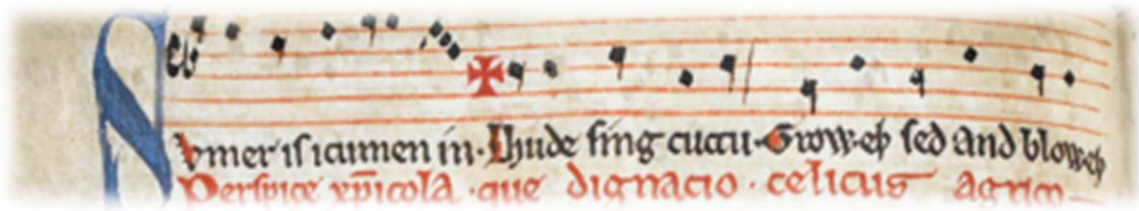 Svmer is icumen in· Lhude sing cuccu· Groweþ sed and bloweþ
Perspice xp̅icola ·que dignacio · celicus agrico